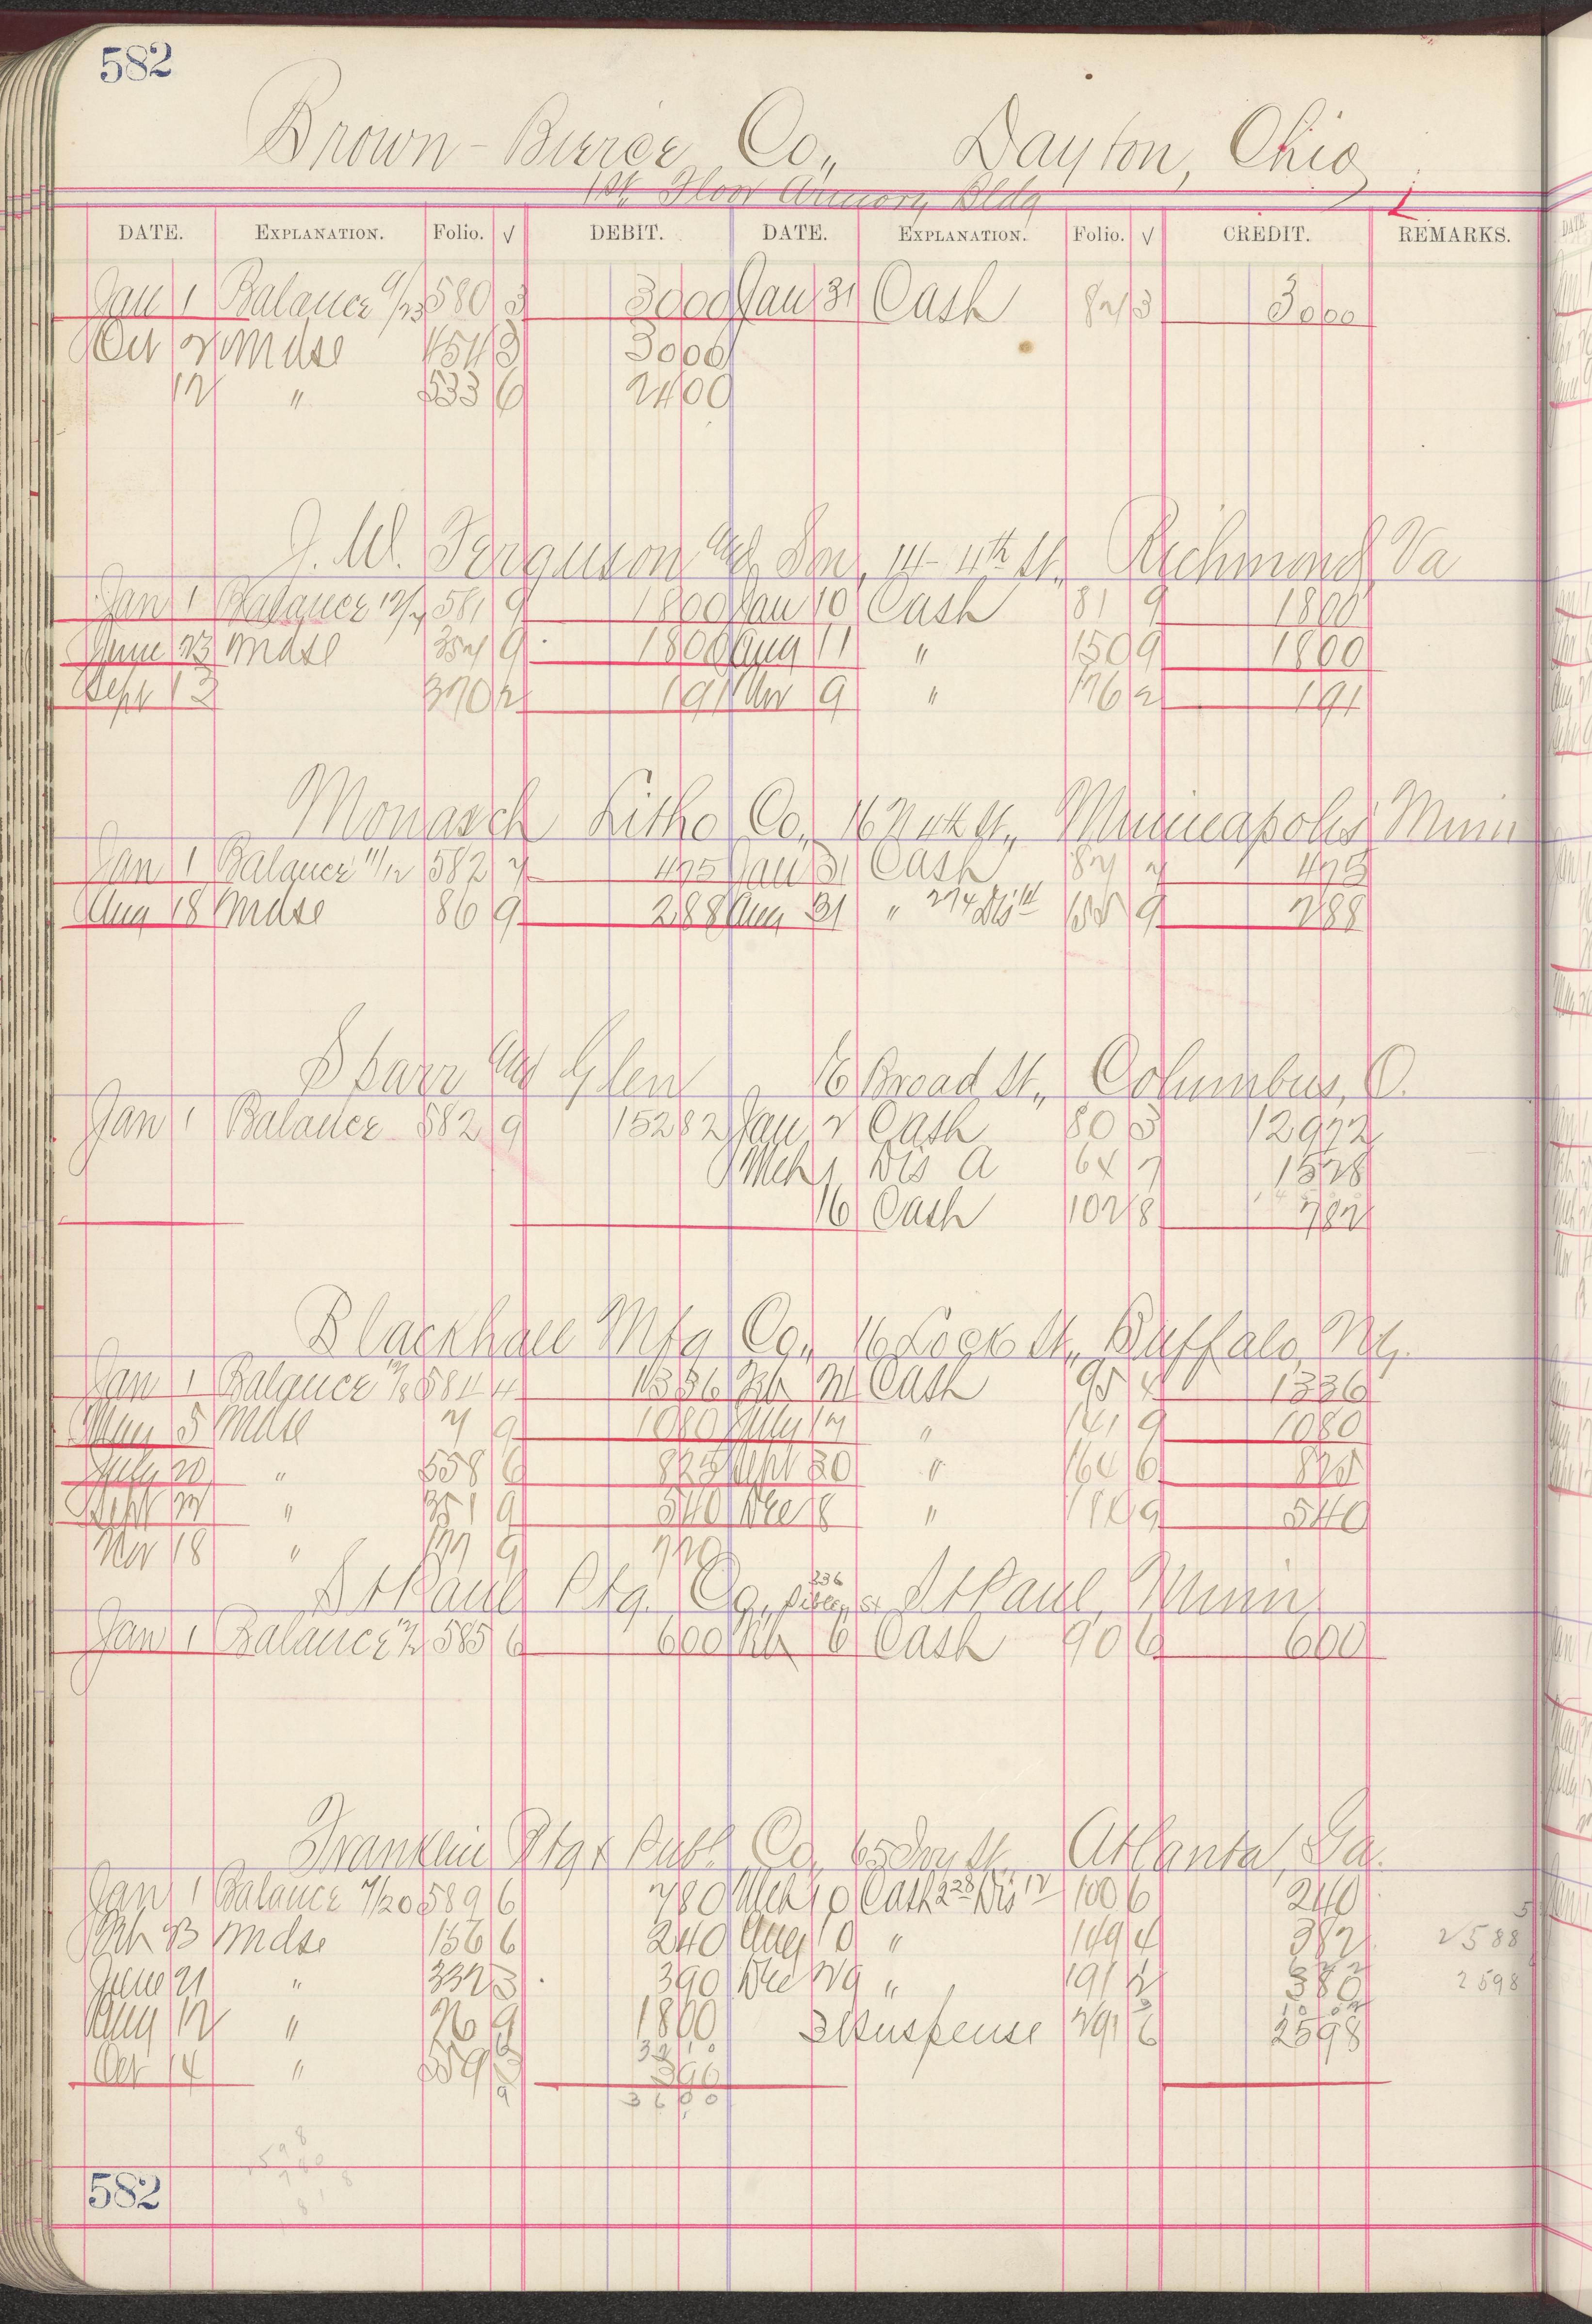 582
Brown-Bierce Co., Dayton, Ohio
1st Floor Armory Bldg
DATE. EXPLANATION. Folio. √ DEBIT. DATE. EXPLANATION. Folio. √ CREDIT. REMARKS.
Jan 1 Balance 580 3 3000 Jan 31 Cash 3 3000
Oct 2 Mdse 3 3000
12 " 533 6 2400
J. W. Ferguson and Son, 14-4th St., Richmond, Va
Jan 1 Balance 581 9 1800 Jan 10 Cash 81 9 1800
June 23 Mdse 9 1800 Aug 11 " 150 9 1800
Sept 13 370 2 191 Nov 9 " 176 2 191
Monasch Litho Co., Minneapolis Minn
Jan 1 Balance 11/12 582 7 475 Jan 31 Cash 7 475
Aug 18 Mdse 86 9 288 Aug 31 " 9 288
Sparr and Glen 16 Broad St., Columbus, O.
Jan 1 Balance 582 9 15282 Jan 2 Cash 80 3 12972
Mch 1 Dis A 64 7 1528
16 Cash 102 8 782
Blackhall Mfg Co., 16 Lock St., Buffalo, Ny.
Jan 1 Balance 584 4 1336 Feb 21 Cash 95 4 1336
May 5 Mdse 9 1080 July 17 " 9 1080
July 20 " 558 6 825 Sept 20 " 6 825
Sept 22 " 351 9 540 Dec 8 " 9 540
Nov 18 " 9 720
St Paul Ptg. Co., 236 St Paul, Minn
Jan 1 Balance 585 6 600 Feb 6 Cash 90 6 600
Franklin Ptg & Publ. Co, 65 Ivy St. Atlanta, Ga.
Jan 1 Balance 7/20 589 6 780 Mch 10 Cash 100 6 240
Feb 23 Mdse 156 6 240 Aug 10 " 149 4 382
June 21 " 332 3 390 Dec 29 " 191 2 380
Aug 12 " 26 9 1800 Suspense 291 6 2598
Oct 14 " 559 390
3600
2588
2598
582